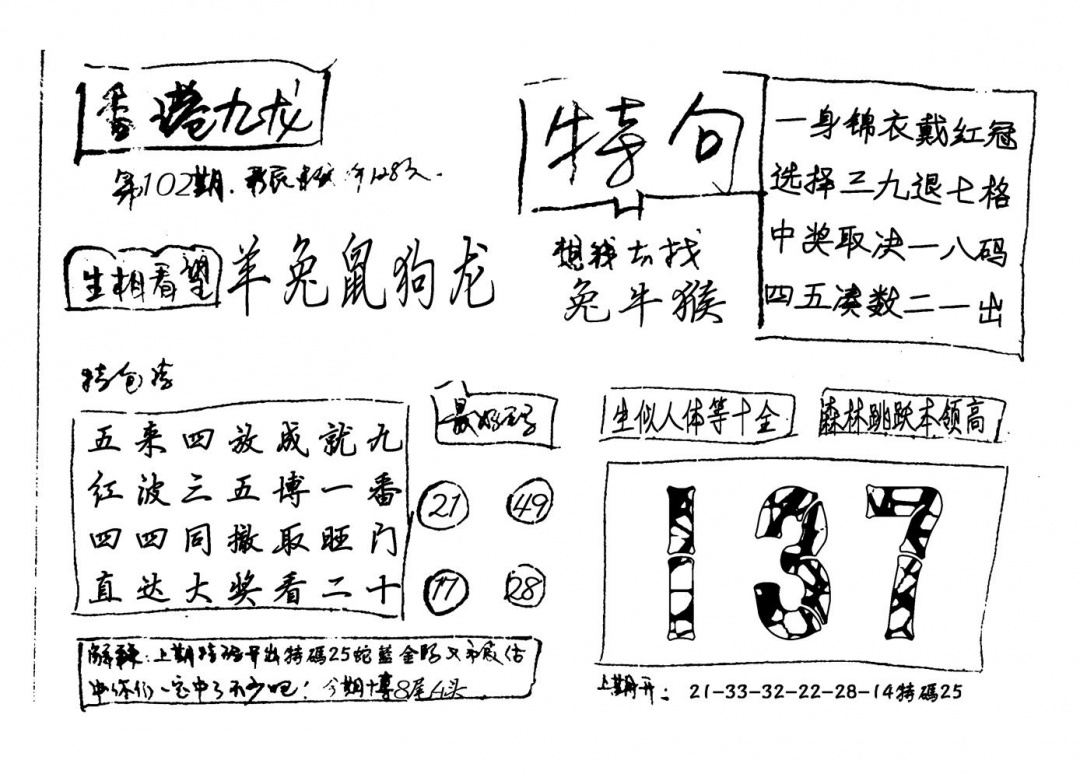 香港九龙
第102期.
特句
一身锦衣戴红冠
选择三九退七格
中奖取决一八码
四五凑数二一出
生相看望
羊兔鼠狗龙
想钱去找
兔牛猴
特包
五来四放成就九
红波三五博一番
四四同撤取旺门
直达大奖看二十
21
49
11
28
生似人体等十全
森林跳跃本领高
137
解释:上期特码开出特碼25蛇蓝金
中你们一定中了不少吧!今期博8尾4头
上期开: 21-33-32-22-28-14特碼25